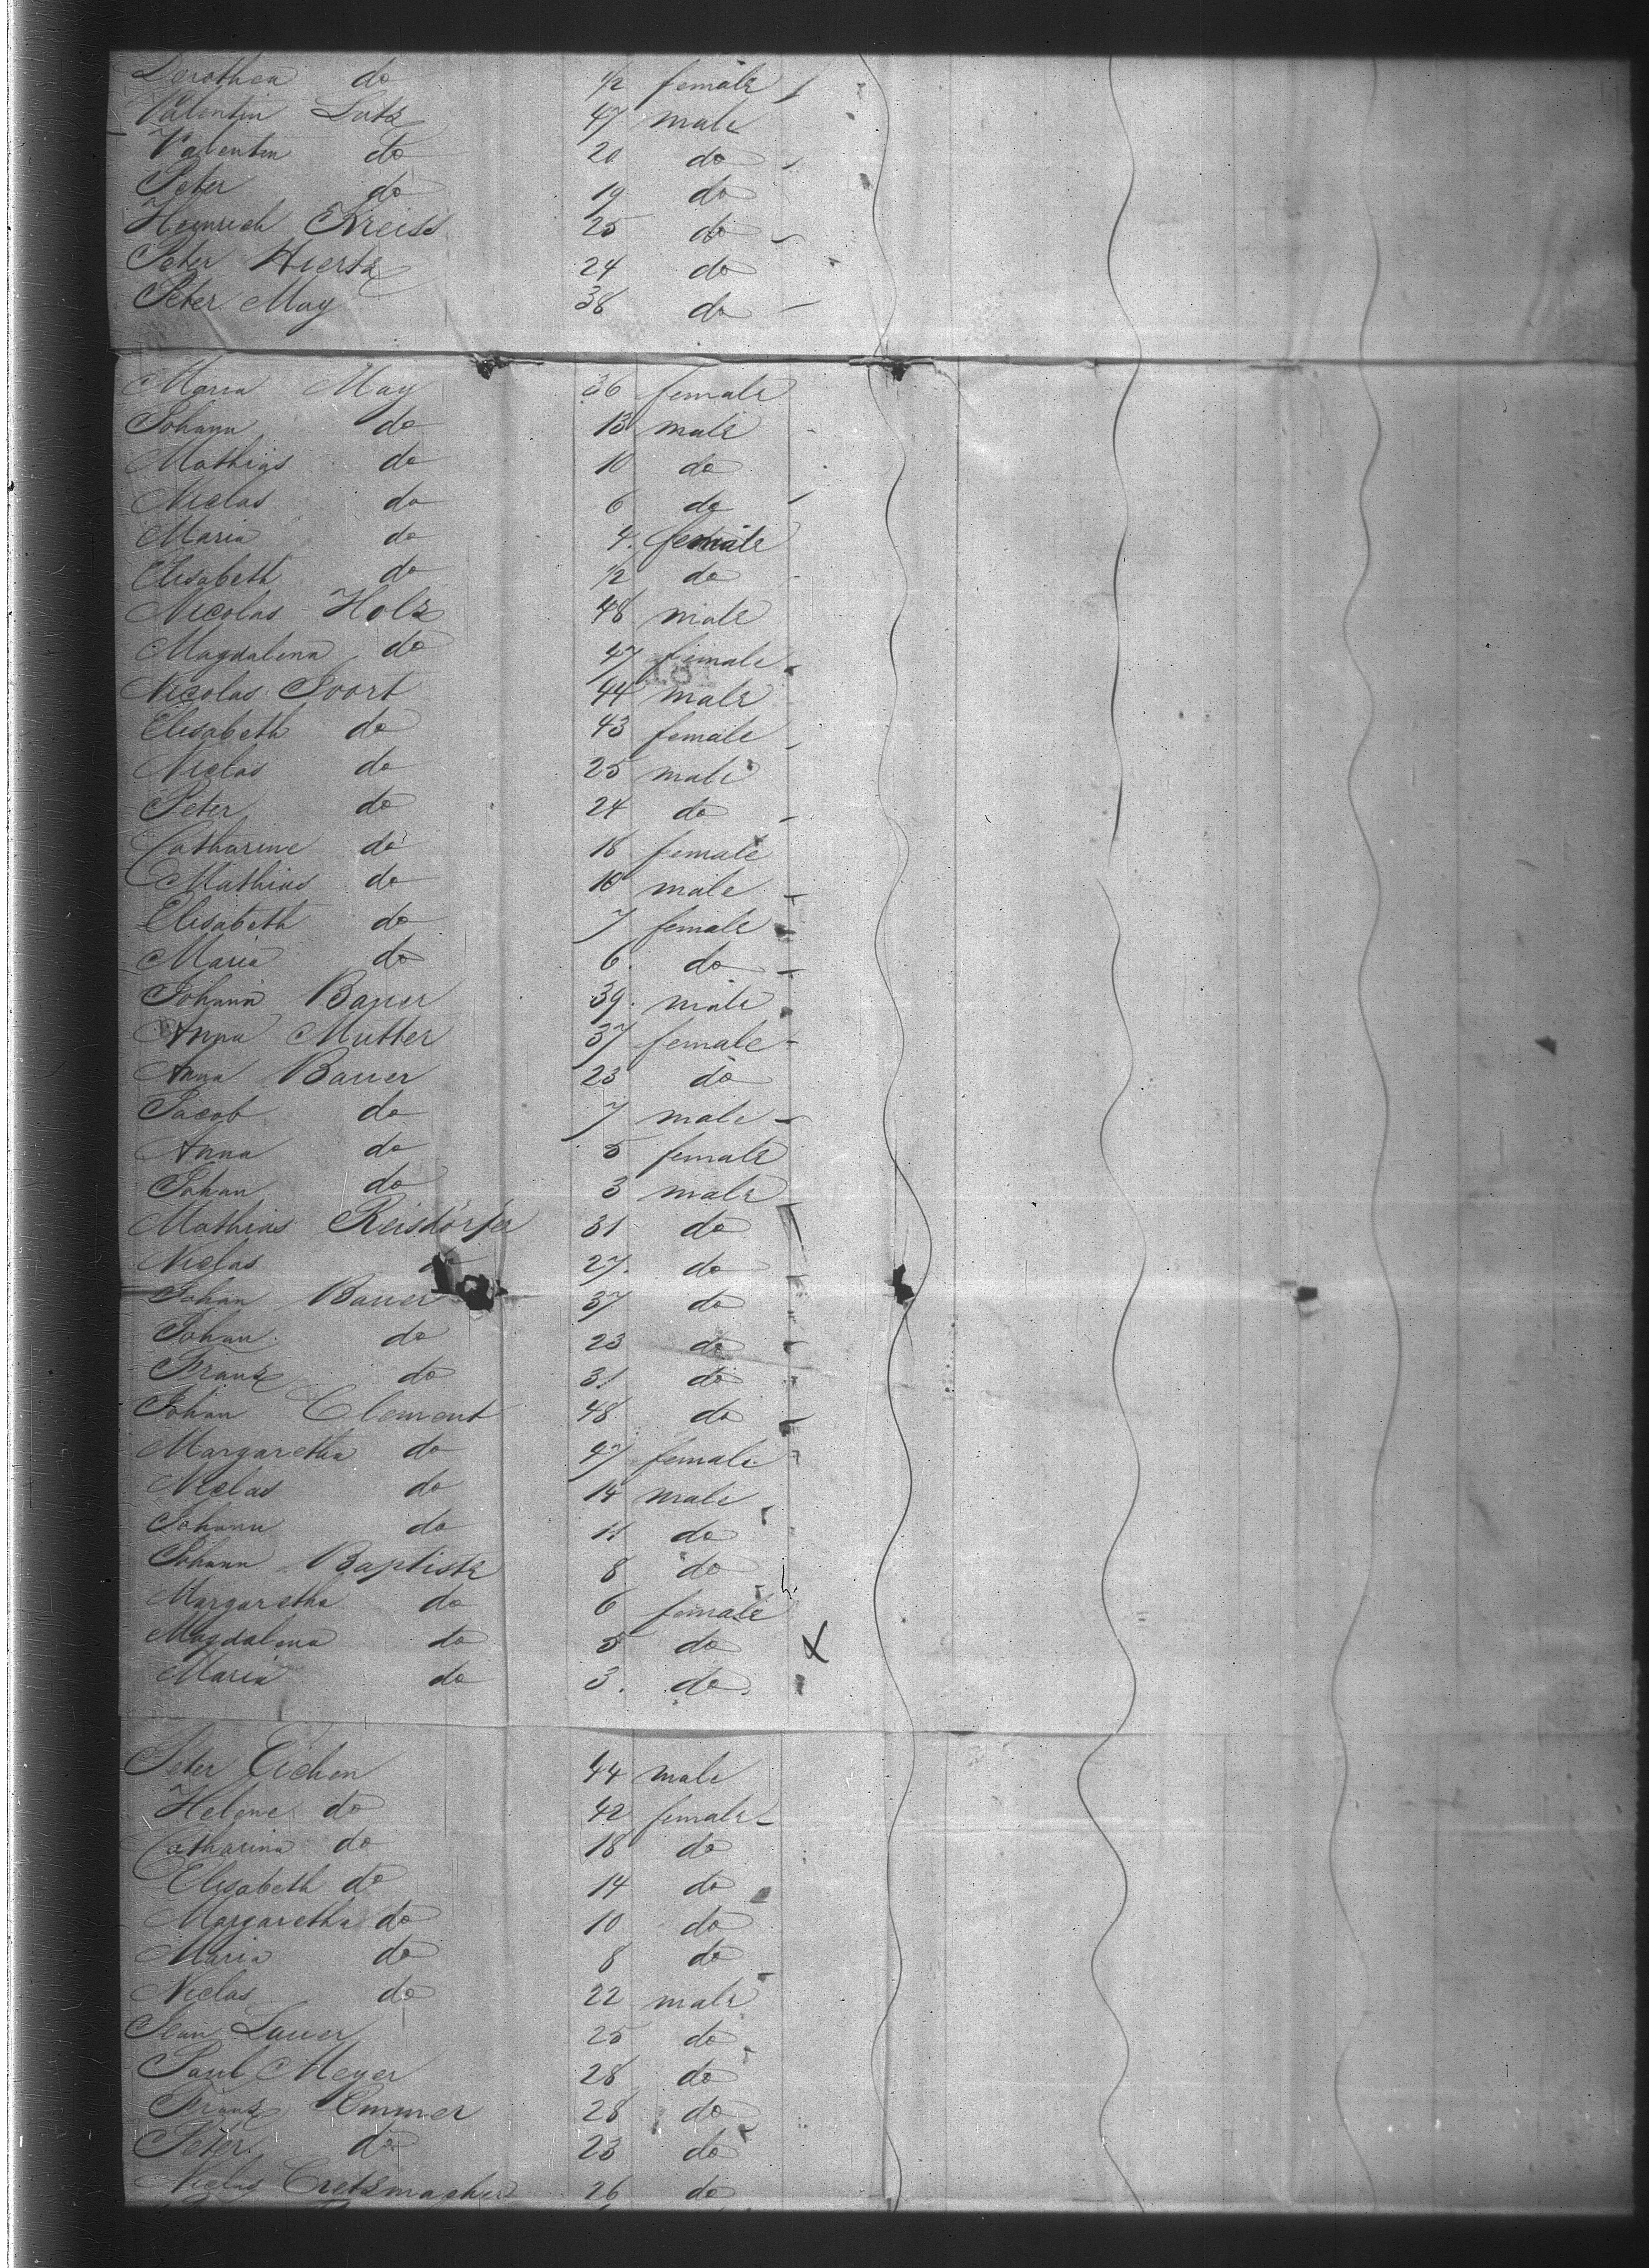 Dorothea do 1/2 female
Valentin Lutz 47 male
Valentin do 20 do
Peter do 19 do
Heinrich Kreiss 25 do
Peter Hiertz 24 do
Peter May 38 do
Maria May 36 female
Johann do 13 male
Mathias do 10 do
Niclas do 6 do
Maria do 4 female
Elisabeth do 1/2 do
Nicolas Holz 48 male
Magdalena do 47 female
Nicolas 44 male
Elisabeth do 43 female
Niclas do 25 male
Peter do 24 do
Catharine do 18 female
Mathias do 10 male
Elisabeth do 7 female
Maria do 6 do
Johann Bauer 39 male
Anna Mutter 37 female
Anna Bauer 23 do
Jacob do 7 male
Anna do 5 female
Johan do 3 male
Mathias Reisdörfer 31 do
Niclas 27 do
Johan Bauer 37 do
Johan do 23 do
Franz do 31 do
Johan Clement 48 do
Margaretha do 47 female
Niclas do 14 male
Johann do 11 do
Johann Baptiste 8 do
Margaretha do 6 female
Magdalena do 5 do X
Maria do 3 do
Peter Eichen 44 male
Helene do 42 female
Catharina do 18 do
Elisabeth do 14 do
Margaretha do 10 do
Maria do 8 do
Niclas do 22 male
Jean Lauer 25 do
Paul Meyer 28 do
Franz Emmer 28 do
Peter do 23 do
Niclas Cretzmacher 26 do